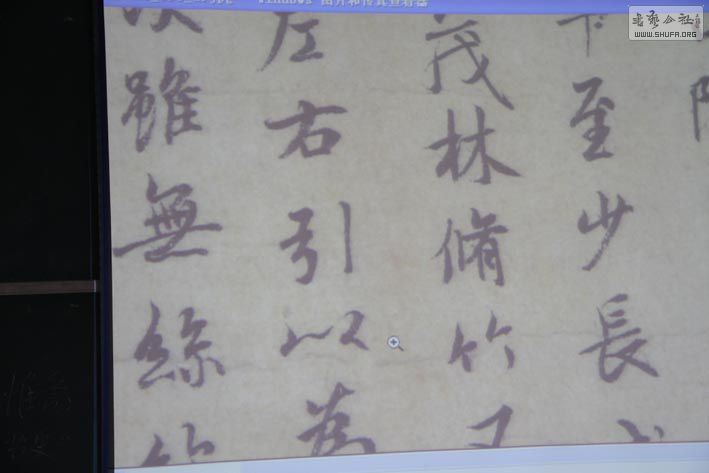 Windows 图片和传真查看器
书艺公社
WWW.SHUFA.ORG
至少長
茂林脩竹又
左右引以為
雖無絲竹